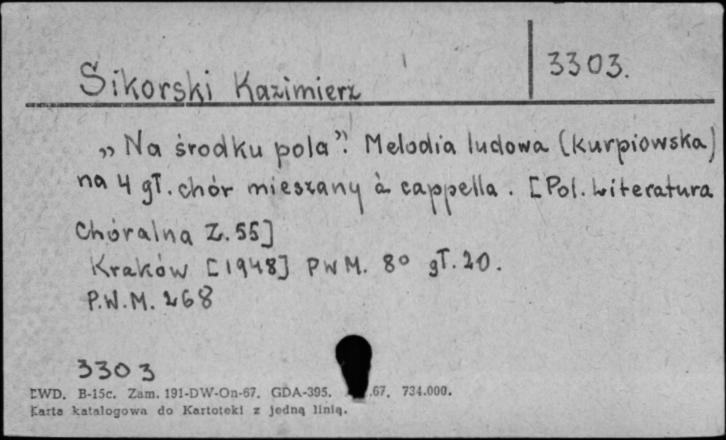 3303.
Sikorski Kazimierz
„Na środku pola”. Melodia ludowa (kurpiowska)
na 4 gł. chór mieszany à cappella. [Pol. Literatura
Chóralna Z. 55]
Kraków [1948] PWM. 8° gł. 20.
P.W.M. 268
3303
EWD. B-15c. Zam. 191-DW-On-67. GDA-395. .67. 734.000.
Karta katalogowa do Kartoteki z jedną linią.